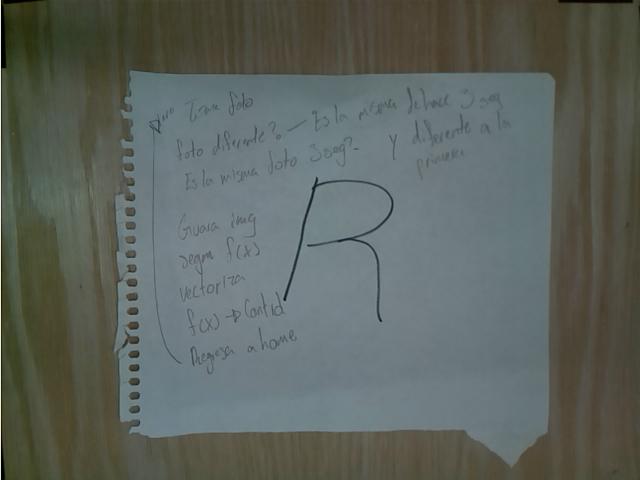 Toma foto
foto diferente? — Es la misma de hace 3 seg
Es la misma foto 3 seg? - Y diferente a la
primera
R
Guarda img
segun f(x)
vectoriza
f(x) → Cont id
Regresa a home